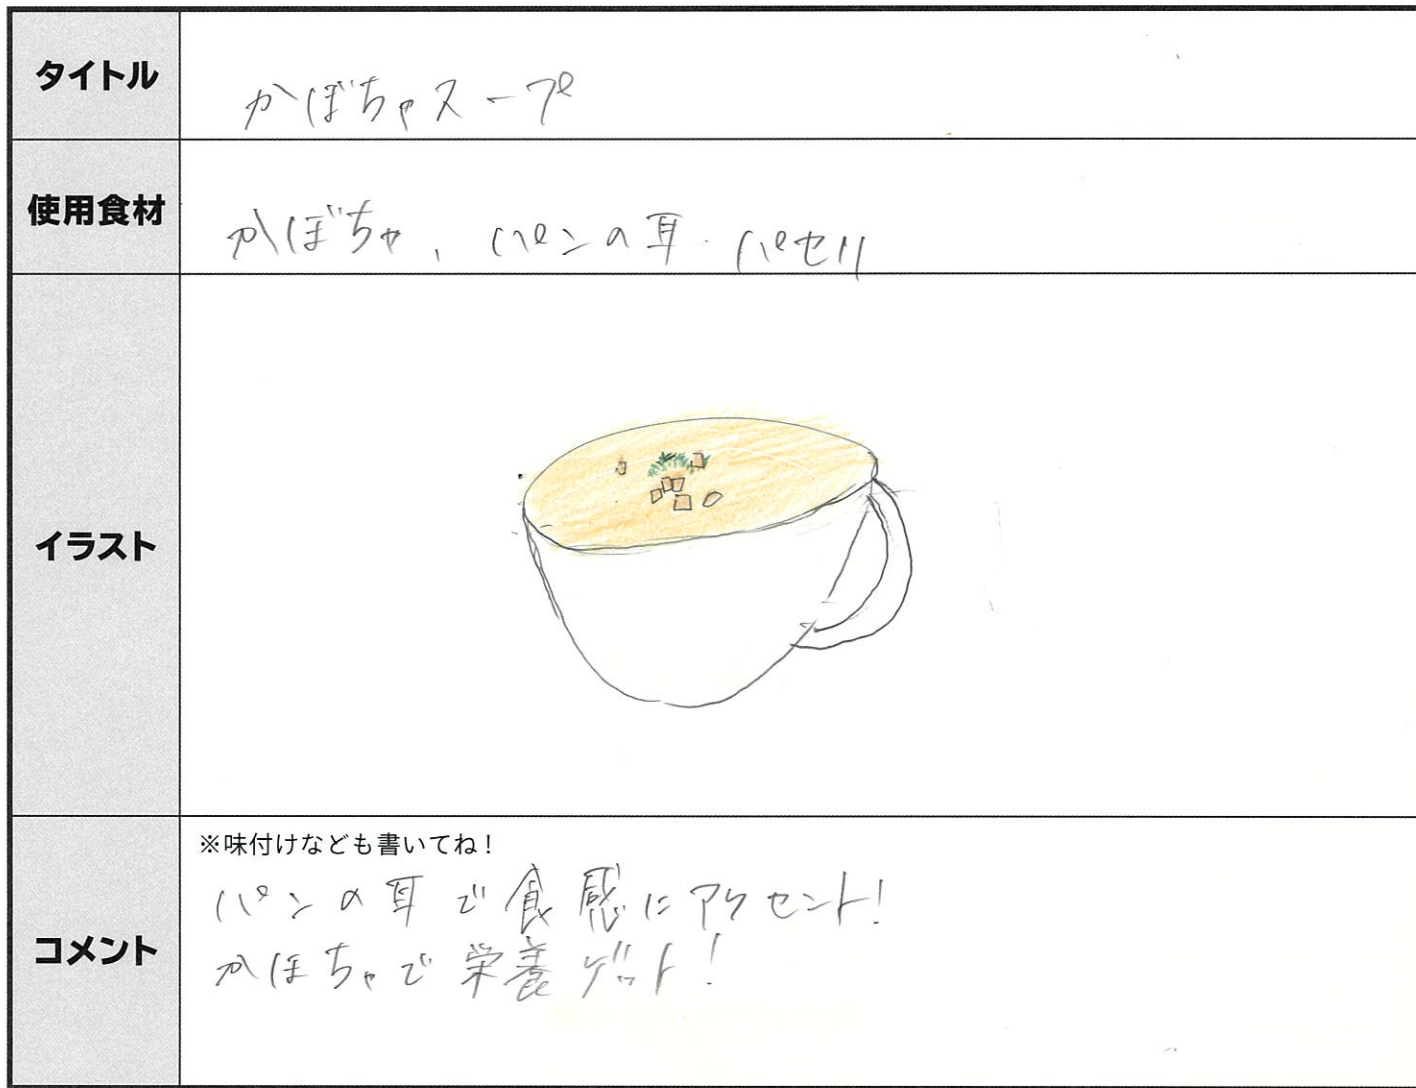 タイトル
かぼちゃスープ
使用食材
かぼちゃ、パンの耳.パセリ
イラスト
コメント
※味付けなども書いてね!
パンの耳で食感にアクセント!
かぼちゃで栄養ゲット!